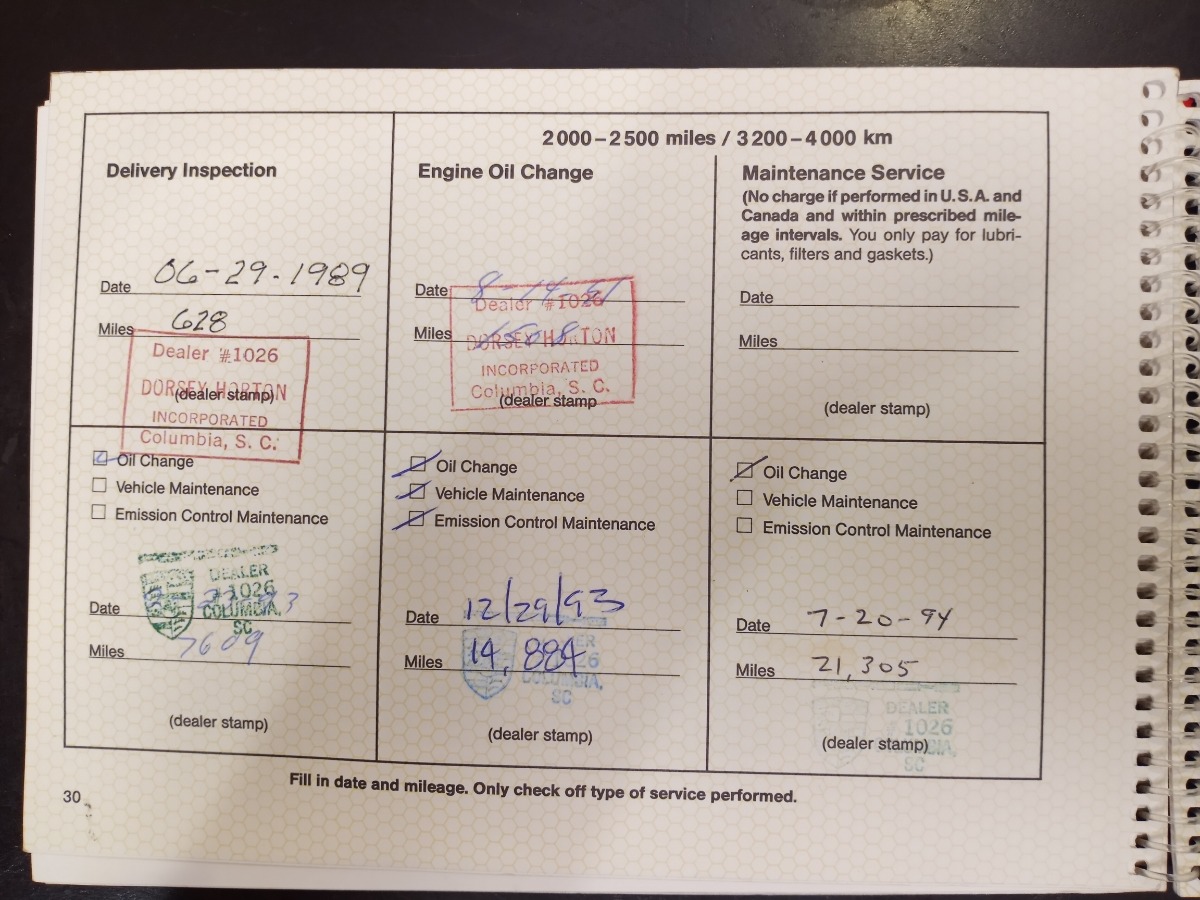 2000–2500 miles / 3200–4000 km
Delivery Inspection
Date 06-29-1989
Miles 628
Dealer #1026
DORSEY HORTON
(dealer stamp)
INCORPORATED
Columbia, S. C.
Engine Oil Change
Date
Miles
Dealer #1026
DORSEY HORTON
INCORPORATED
Columbia, S. C.
(dealer stamp
Maintenance Service
(No charge if performed in U.S.A. and
Canada and within prescribed mile-
age intervals. You only pay for lubri-
cants, filters and gaskets.)
Date
Miles
(dealer stamp)
Oil Change
Vehicle Maintenance
Emission Control Maintenance
DEALER
#1026
COLUMBIA,
SC
Date
Miles 7609
(dealer stamp)
Oil Change
Vehicle Maintenance
Emission Control Maintenance
Date 12/29/93
Miles 14,884
COLUMBIA,
SC
(dealer stamp)
Oil Change
Vehicle Maintenance
Emission Control Maintenance
Date 7-20-94
Miles 21,305
DEALER
1026
(dealer stamp)
SC
Fill in date and mileage. Only check off type of service performed.
30